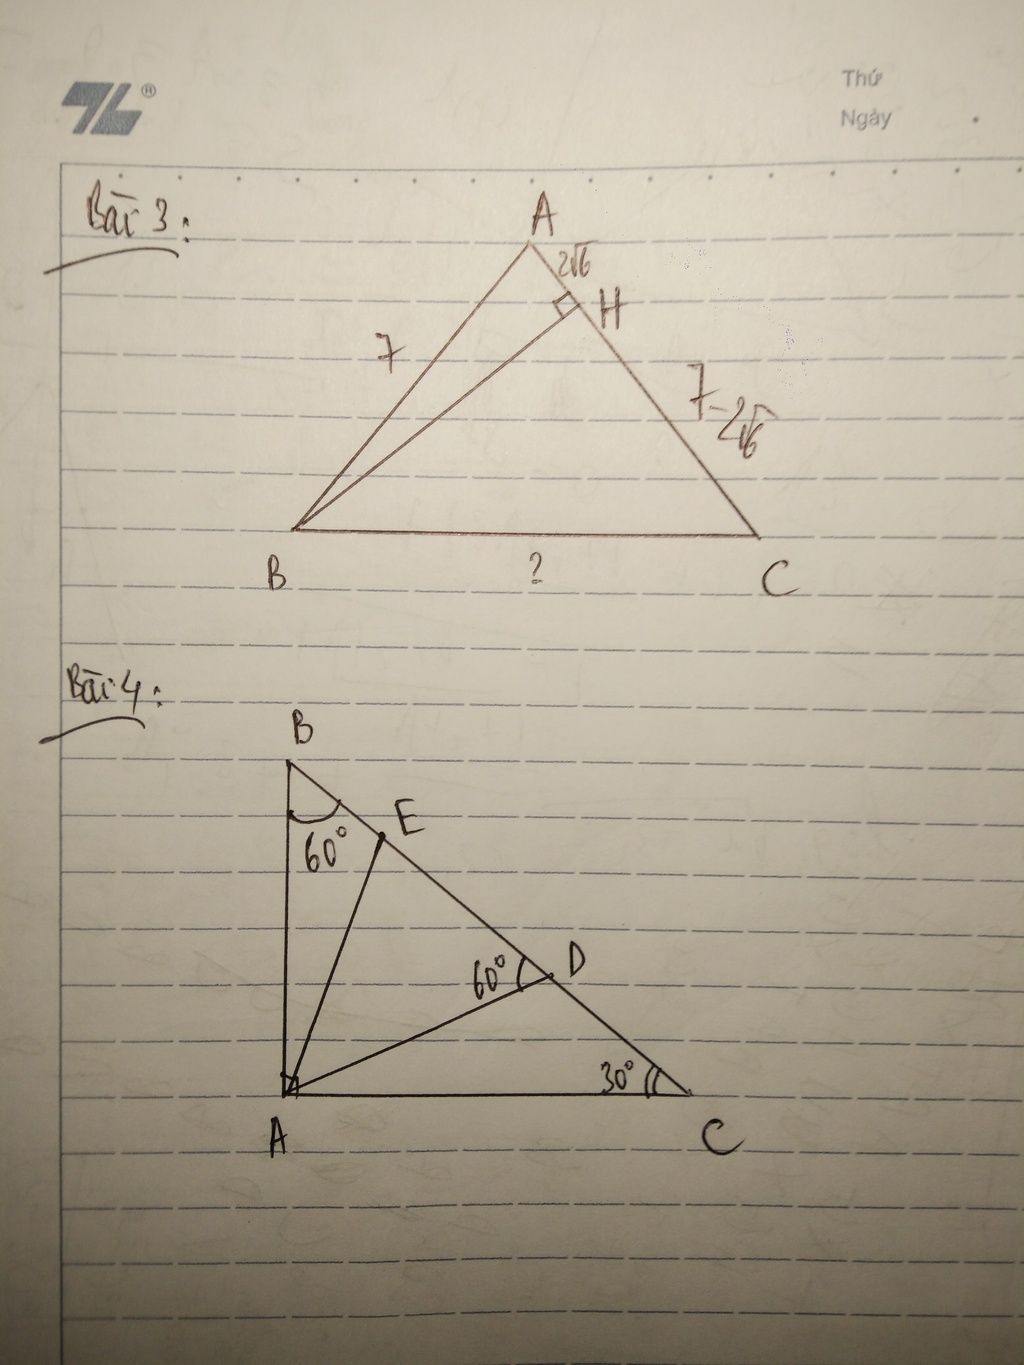 TL®
Thứ
Ngày
Bài 3:
A
2√6
H
7
7-2√6
B
?
C
Bài 4:
B
60°
E
60°
D
30°
A
C